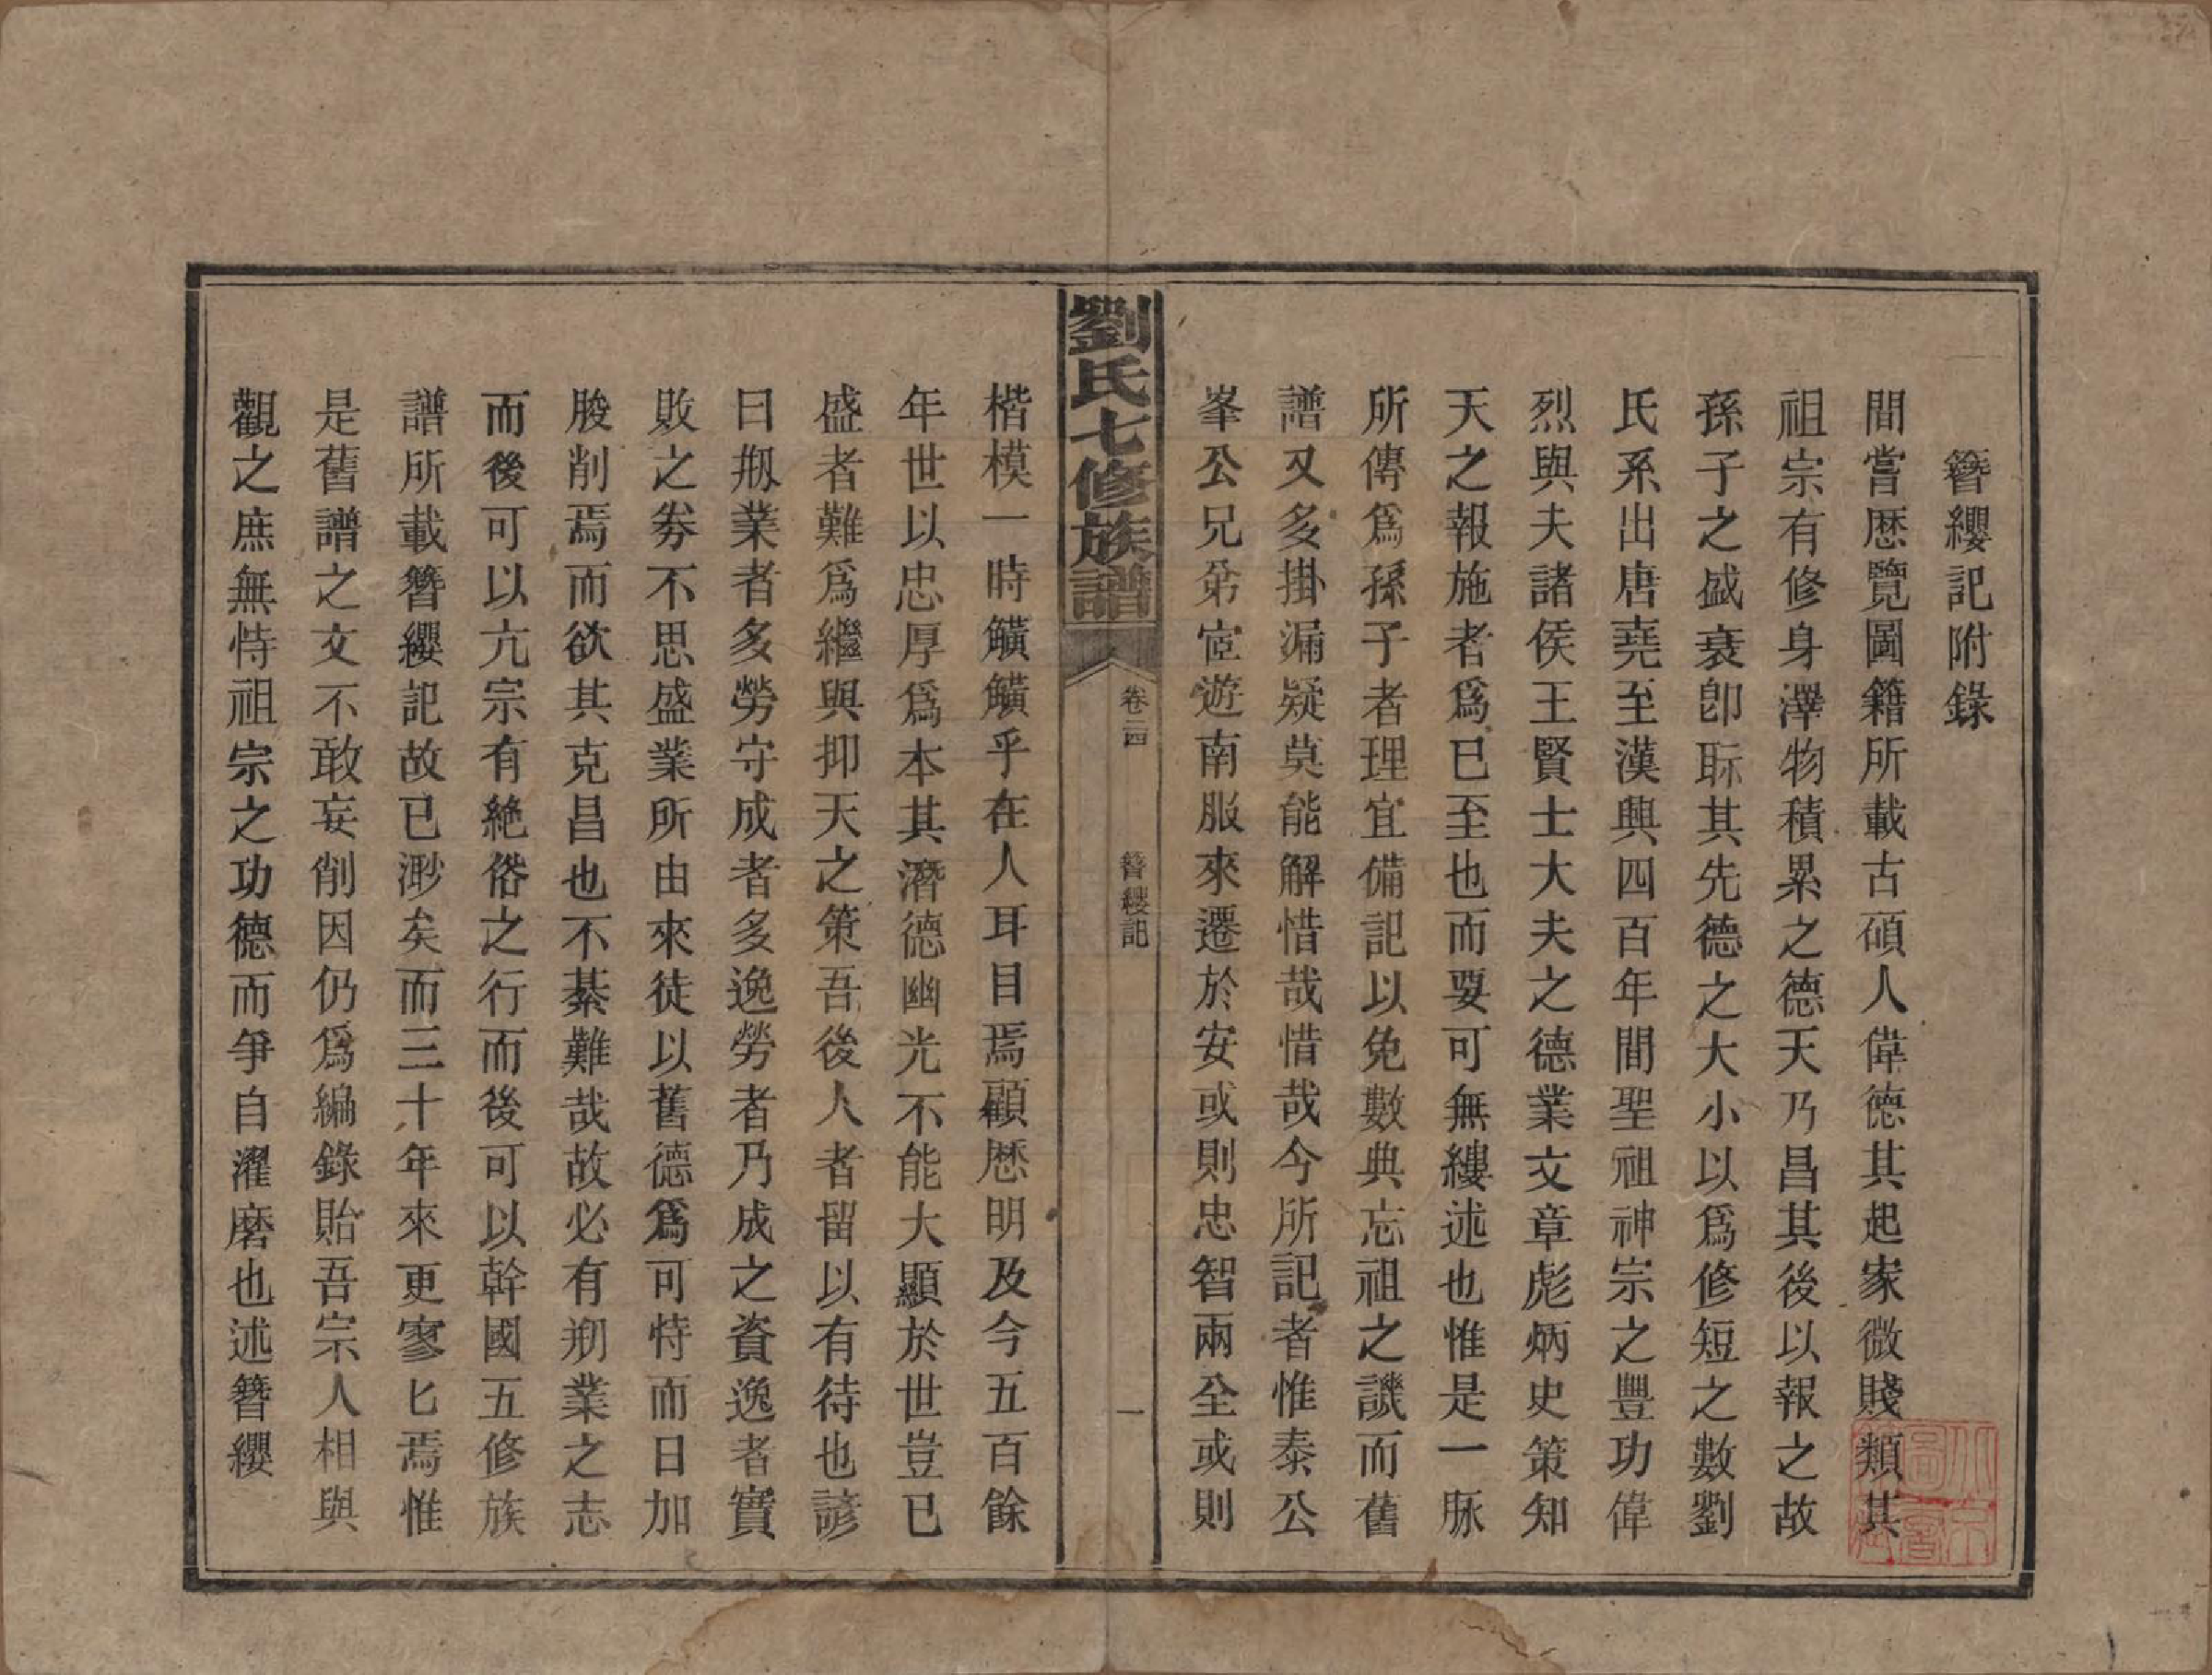 簪纓記附錄
間嘗歴覽圖籍所載古碩人偉德其起家微賤類其
祖宗有修身澤物積累之德天乃昌其後以報之故
孫子之盛衰卽眎其先德之大小以爲修短之數劉
氏系出唐堯至漢興四百年間聖祖神宗之豐功偉
烈與夫諸侯王賢士大夫之德業文章彪炳史策知
天之報施者爲已至也而要可無縷述也惟是一脉
所傳爲孫子者理宜備記以免數典忘祖之譏而舊
譜又多掛漏疑莫能解惜哉惜哉今所記者惟泰公
峯公兄弟宦遊南服來遷於安或則忠智兩全或則
劉氏七修族譜
卷二四
簪纓記
一
楷模一時鑛鑛乎在人耳目焉顧歴明及今五百餘
年世以忠厚爲本其濳德幽光不能大顯於世豈已
盛者難爲繼與抑天之策吾後人者留以有待也諺
曰剏業者多勞守成者多逸勞者乃成之資逸者實
敗之劵不思盛業所由來徒以舊德爲可恃而日加
朘削焉而欲其克昌也不綦難哉故必有剏業之志
而後可以亢宗有絶俗之行而後可以幹國五修族
譜所載簪纓記故已渺矣而三十年來更寥匕焉惟
是舊譜之文不敢妄削因仍爲編錄貽吾宗人相與
觀之庶無恃祖宗之功德而爭自濯磨也述簪纓